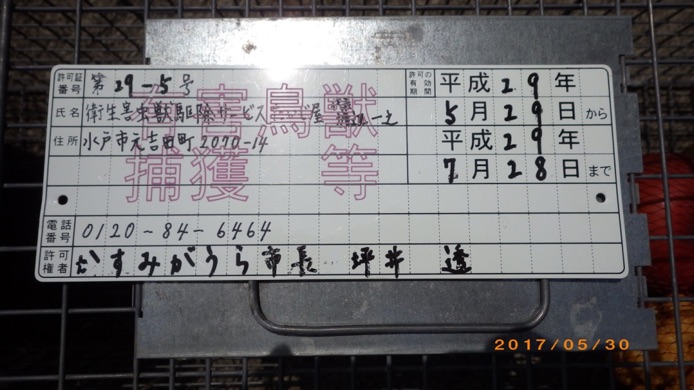 許可証番号 第29-5号
許可の有効期間 平成29年5月29日から平成29年7月28日まで
氏名 衛生害虫獣駆除サービス
住所 水戸市元吉田町2070-14
害鳥獣
捕獲 等
電話番号 0120-84-6464
許可権者 かすみがうら市長 坪井 透
2017/05/30